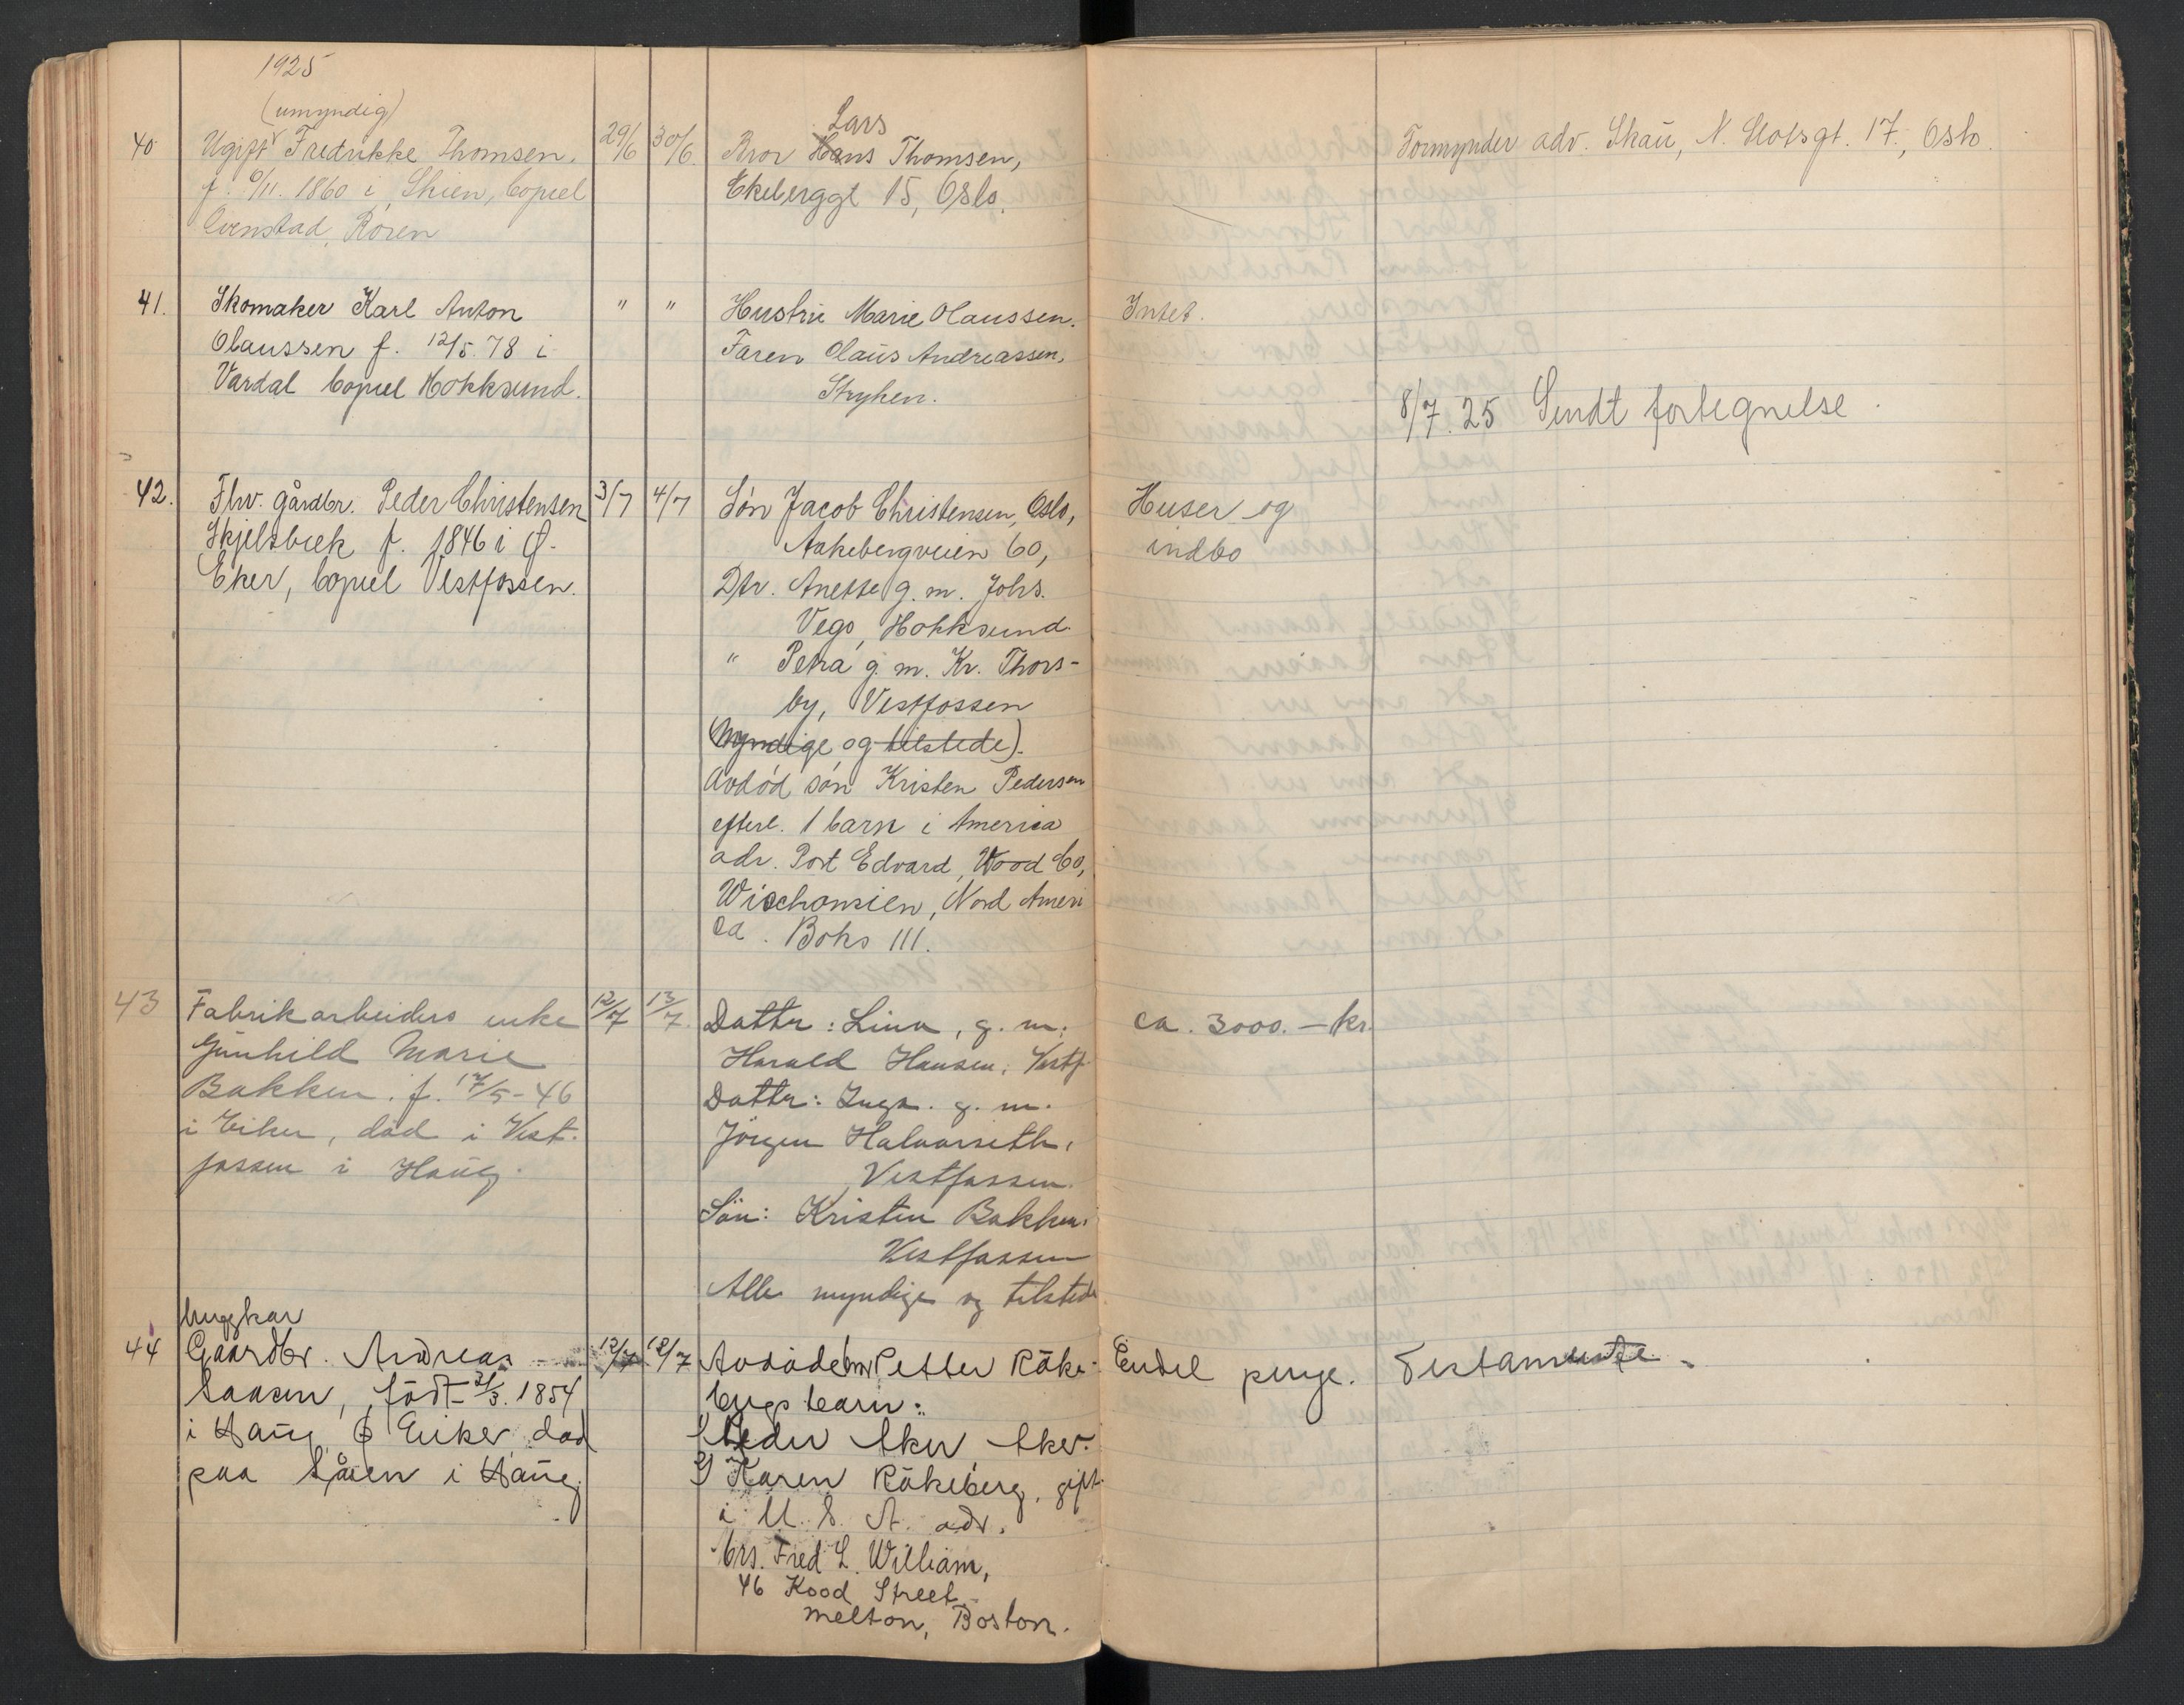 1925
(umyndig)
40 Ugift Fredrikke Thomsen, 29/6 30/6 Bror Hans Lars Thomsen, Formynder adv. Skau, N. Slotsgt. 17, Oslo.
f. 6/11. 1860 i Skien, bopæl Ekeberggt 15, Oslo.
Evenstad, Roren
41. Skomaker Karl Anton " " Hustru Marie Olaussen. Intet.
Olaussen f. 12/5. 78 i Faren Olaus Andreassen,
Vardal bopæl Hokksund. Stryken.
8/7. 25 Sendt fortegnelse.
42. Fhv. gårdbr. Peder Christensen 3/7 4/7 Søn Jacob Christensen, Oslo, Huser og
Skjelsbæk f. 1846 i Ø. Aakebergveien 60, indbo
Eker, bopæl Vestfossen. Dtr. Anette g. m. Johs.
Vego, Hokksund.
" Petra g. m. Kr. Thors-
by, Vestfossen
(Myndige og tilstede).
Avdød søn Kristen Pedersen
efterl. 1 barn i America
adr. Post Edvard, Wood Co,
Wischonsien, Nord Ameri
ca. Boks 111.
43 Fabrikarbeiders enke 12/7 13/7. Dattr: Lina, g. m. ca. 3000.- kr.
Gunhild Marie Harald Hansen, Vestf.
Bakken. f. 17/5-46 Dattr: Inga. g. m.
i Eiker, død i Vest- Jörgen Halvorseth,
fossen i Haug. Vestfossen.
Sön: Kristen Bakken.
Vestfossen
Alle myndige og tilstede
Ungkar
44 Gaardbr. Andreas 12/7 12/7 Avdöde bror Petter Råke- Endel penge. Testamente.
Saasen, född 21/3. 1854 bergs barn:
i Haug, Ø Eiker, död 1) Peder Aker Aker.
paa Såsen i Haug. 2) Karen Råkeberg, gift
i U. S. A. adr.
Mrs. Fred L. William,
46 Kood Street
Melton, Boston.